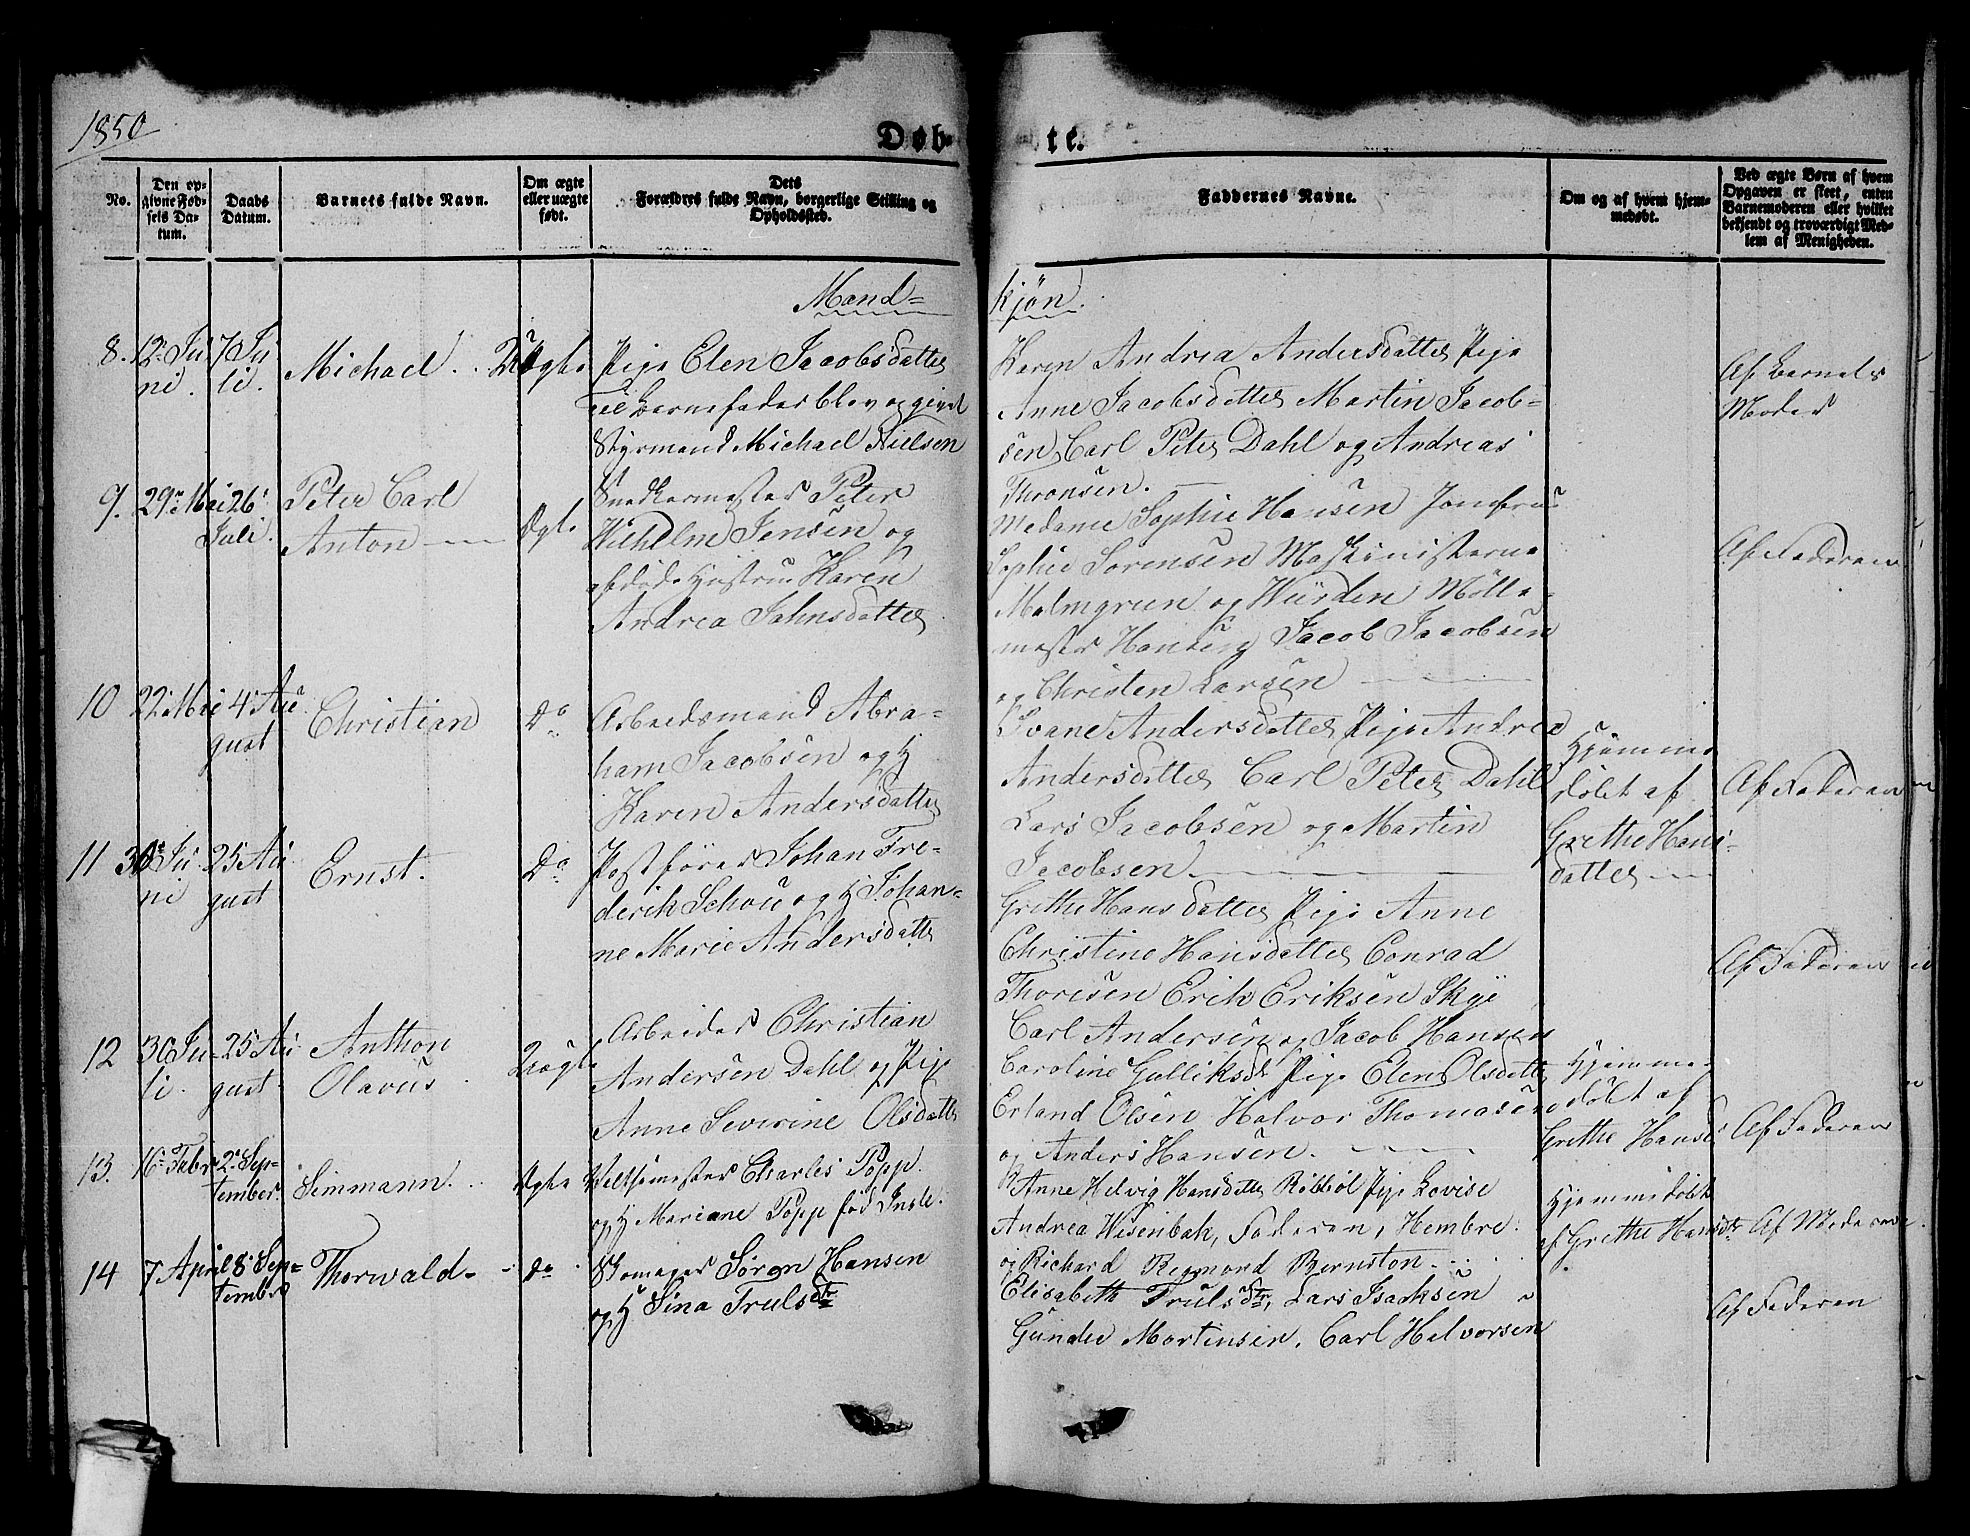 1850
Døb- te.
No.
Den op-
givne Fød-
sels Da-
tum.
Daabs
Datum.
Barnets fulde Navn.
Om ægte
eller uægte
født.
Dets
Forældres fulde Navn, borgerlige Stilling og
Opholdssted.
Faddernes Navne.
Om og af hvem hjem-
medøbt.
Ved ægte Børn af hvem
Opgaven er skeet, enten
Barnemoderen eller hvilket
bekjendt og troværdigt Med-
lem af Menigheden.
Mand= kjøn.
8. 12 Ju
ni.
7 Ju
li.
Michael.
Uægte
Pige Elen Jacobsdatter
til Barnefader blev opgivet
Styrmand Michael Nielsen
Karen Andrea Andersdatter Pige
Anne Jacobsdatter Martin Jacob=
sen, Carl Peter Dahl og Andreas
Thronsen.
Af Barnets
Moder
9. 29 Mai
26
Juli.
Peter Carl
Anton
Ægte
Snedkermester Peter
Wilhelm Jensen og
afdøde Hustru Karen
Andrea Jahnsdatter
Madame Sophie Hansen Jomfru
Sophie Sørensen Maskinisterne
Malmgreen og Würden Mølle-
mester Jacob Jacobsen
og Christen Larsen
Af Faderen
10 22 Mai
4 Au
gust
Christian
Do
Arbeidsmand Abra=
ham Jacobsen og H
Karen Andersdatter
Svane Andersdatter Pige Andrea
Andersdatter Carl Peter Dahl
Lars Jacobsen og Martin
Jacobsen.
Hjemme
døbt af
Grethe Hans-
datter
Af Faderen
11 30 Ju
ni
25 Au
gust
Ernst.
Do
Postfører Johan Fre=
derik Schou og H Johan=
ne Marie Andersdatter
Grethe Hansdatter Pige Anne
Christine Hansdatter Conrad
Thoresen Erik Eriksen Skye
Carl Andersen og Jacob Hansen
Af Faderen
12 30 Ju-
li.
25 Au
gust
Anthon
Olavus
Uægte
Arbeider Christian
Andersen Dahl og Pige
Anne Severine Olsdatter
Caroline Galliksdtr Pige Elen Olsdatter
Erland Olsen Halvor Thomasen
og Anders Hansen.
Hjemme-
døbt af
Grethe Hansd
Af Faderen
13. 16 Febr
2 Sep=
tember.
Simmann.
Ægte
Charles Popp
og H Mariane Popp fød Insle.
Anne Helvig Hansdatter Pige Lovise
Andrea Wisenbak, Faderen, Hembre
og Richard Regmond Bernston
Hjemmedøbt
af Grethe Hansdtr
Af Moderen
14 7 April
8 Sep=
tember
Thorwald-
do
Skomager Søren Hansen
og H Sina Trulsdtr
Elisabeth Trulsdtr, Lars Isacksen
Gunder Mortensen, Carl Halvorsen
Af Faderen